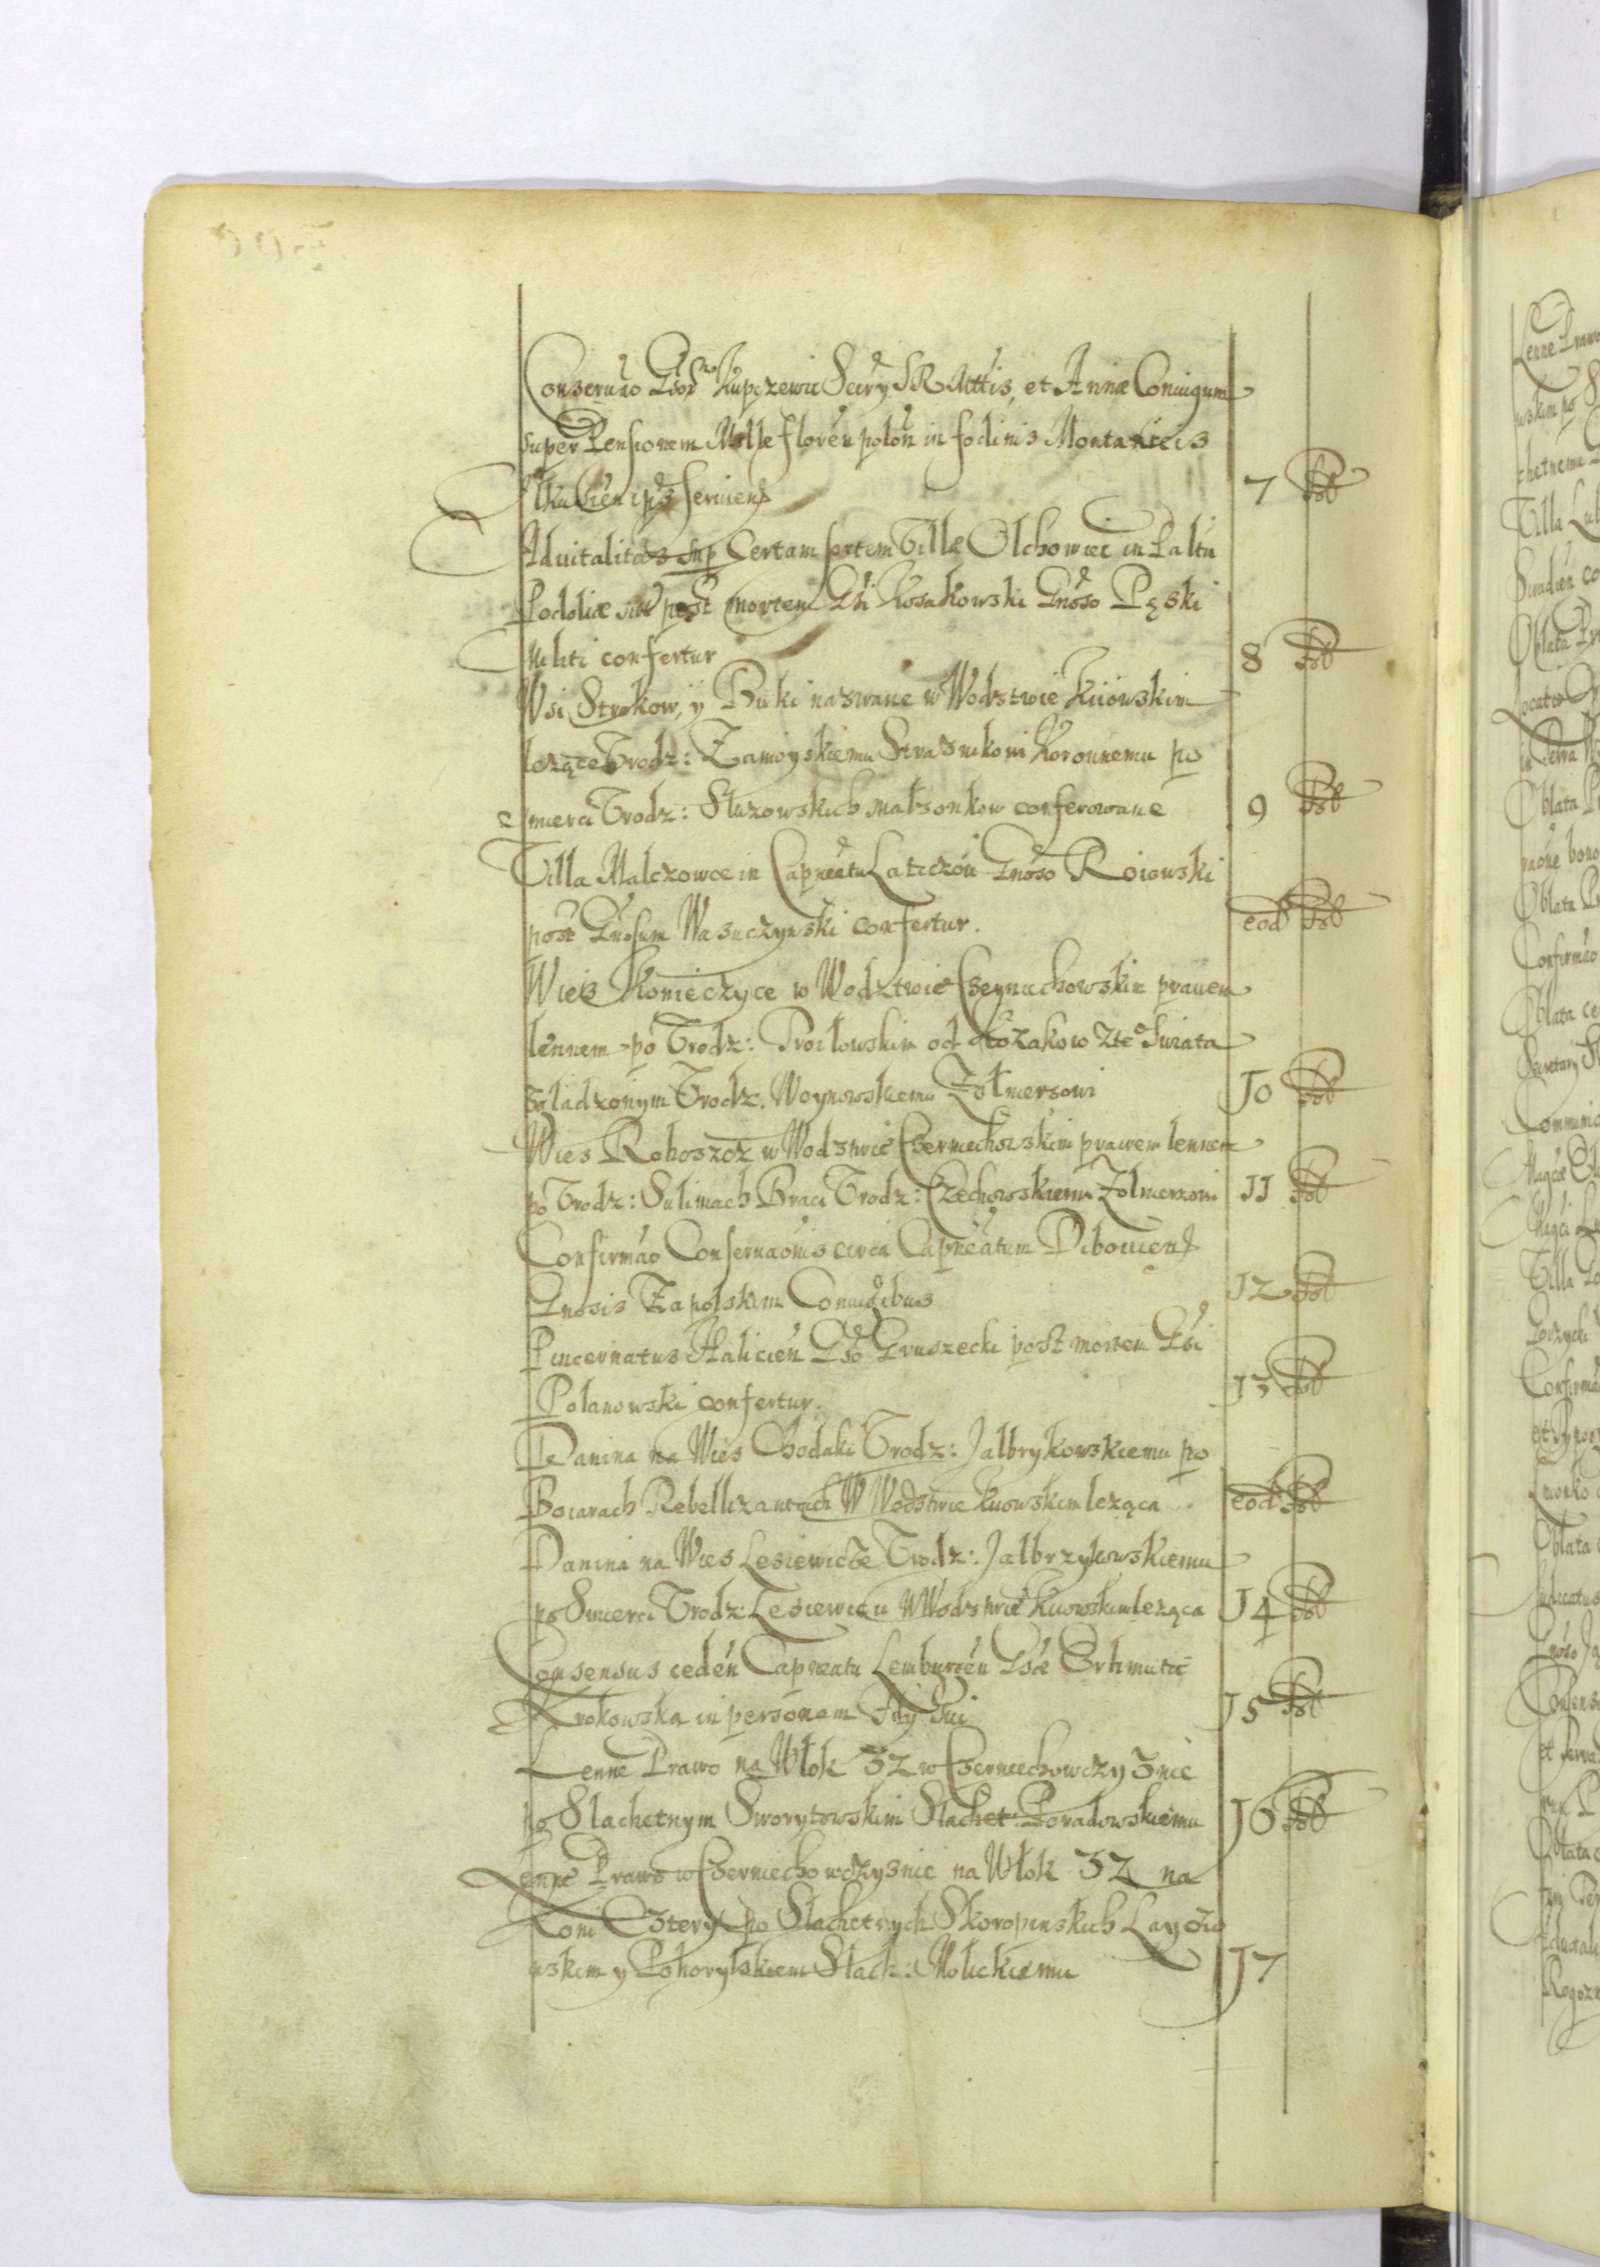 Conseruao Gsor Kupczewic Secry SRMttis, et Annæ Coniugum
super Pensionem Mille floren polon in fodinis Montanicis
Ilkusien ipis seruien 7 fol
Aduitalitas sup Certam sortem Villæ Olchowiec in Paltu
Podoliæ post mortem Gsi Kosakowski Gnoso Pęski
Militi confertur 8 fol
Wsi Strokow, y Buki nazwane w Wodztwie Kiiowskim
leżące Vrodz: Zamoyskiemu Straznikowi Koronnemu po
smierci Vrodz: Służowskich małżonkow conferowane 9 fol
Villa Malczowce in Capneatu Laticzou Gnoso Roiowski
post Gnosum Wasuczynski confertur. eod fol
Wies Konieczyce w Wodztwie Czerniechowskim prawem
lennem po Vrodz: Prociowskim od Kozakow zte Swiata
zgładzonym Vrodz. Woynowskiemu Zołnierzowi 10 fol
Wies Roboszcz w Wodztwie Czerniechowskim prawem lennem
po Vrodz: Sulimach Braci Vrodz: Czechowskiemu Zołnierzowi 11 fol
Confirmao Conseruaonis circa Capneatum Dibowien
Gnosis Zapolskim Coniugibus 12 fol
Pincernatus Halicien Gso Gruszecki post mortem Gsi
Polanowski confertur. 13 fol
Danina na Wies Chodaki Vrodz: Jalbrykowskiemu po
Boiarach Rebellizantach W Wodztwie Kiiowskim leżąca eod fol
Danina na Wies Lesiewicze Vrodz: Jalbrzykowskiemu
po Smierci Vrodz: Lesiewicu W Wodztwie Kiiowskim leżąca 14 fol
Consensus ceden Capneatu Lemburgen Gsæ
Krokowska in personam fily sui 15 fol
Lenne Prawo na Włok 32 w Czerniechowczyznie
po Slachetnym Sworytowskim Slachet Poradowskiemu 16 fol
Lenne Prawo w Czerniechowczyznie na Włok 32 na
Koni Cztery po Slachetnych Skoropinskich Layczo
wskim y Pohorylskiem Slach: Molickiemu 17